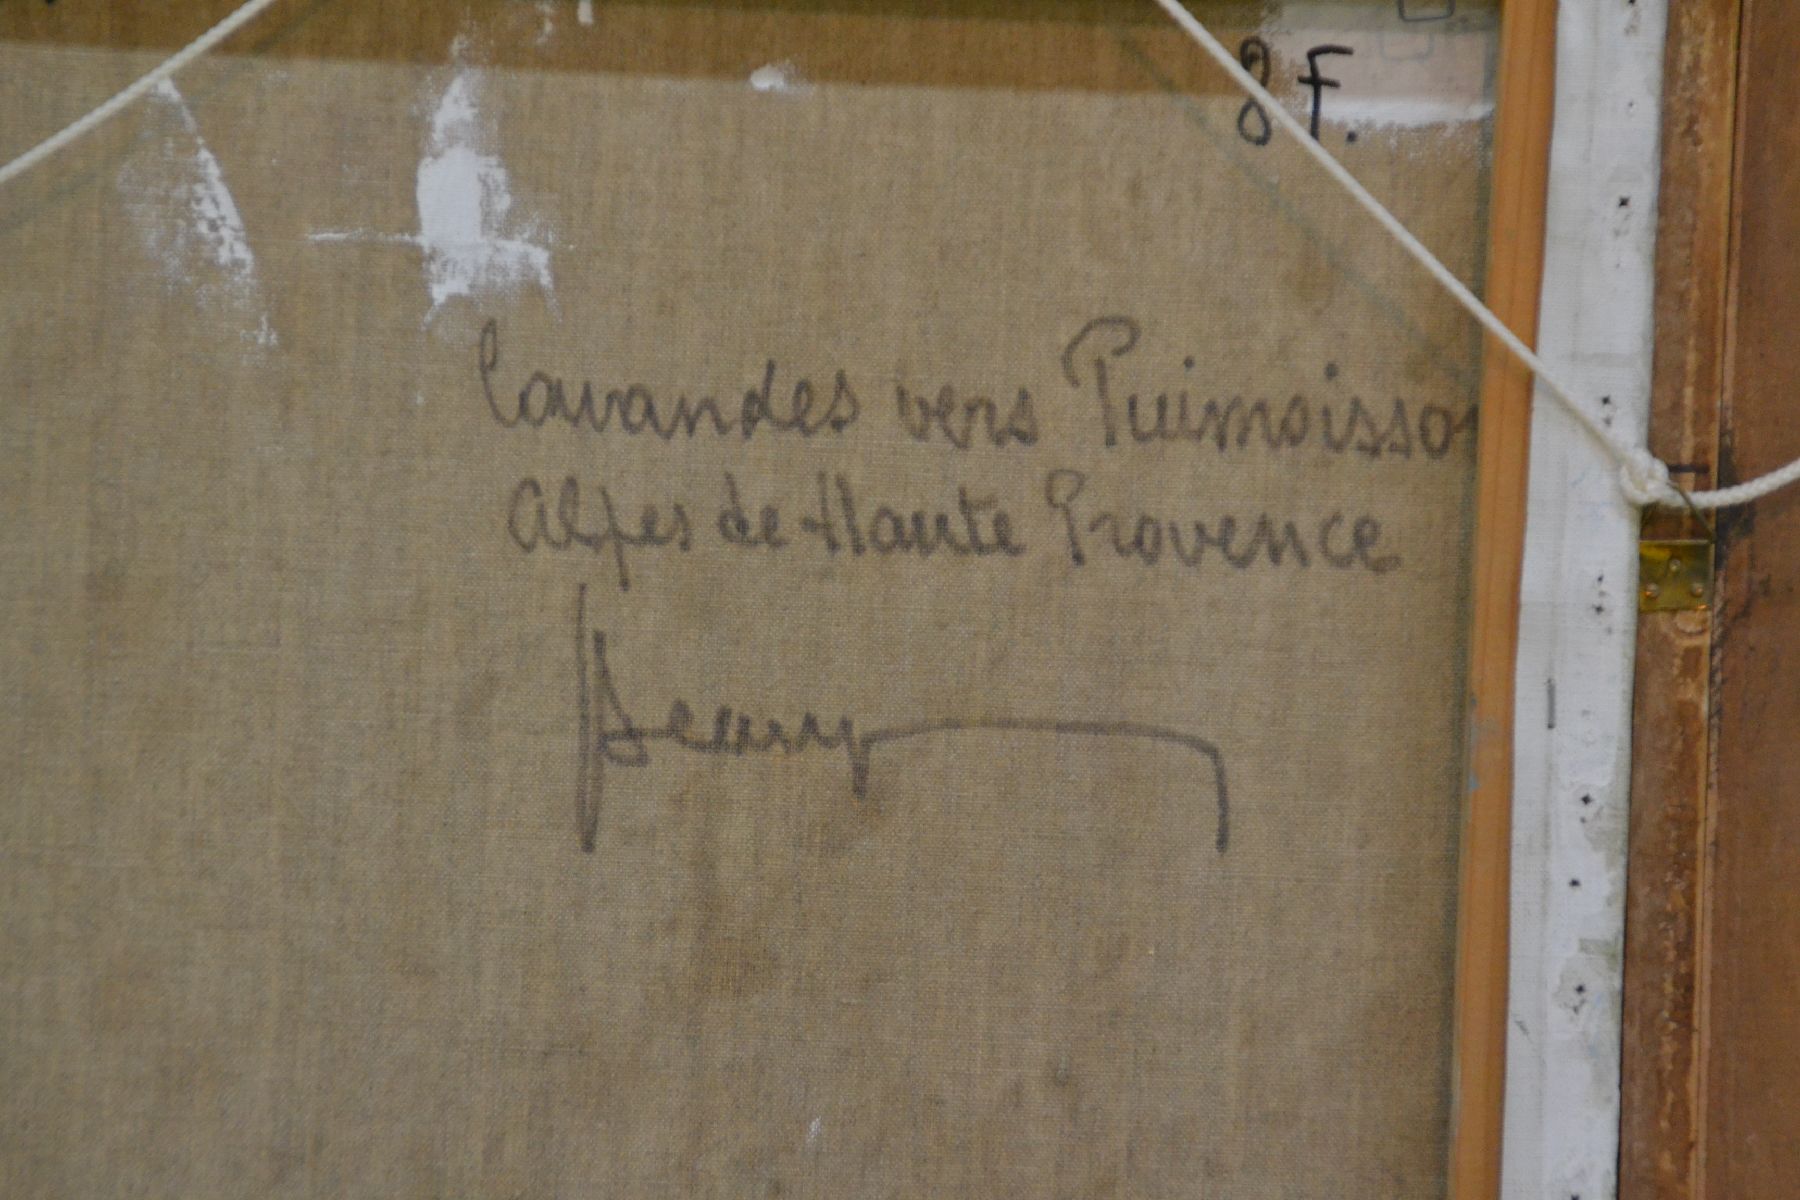 8 F.
lavandes vers Puimoisso
Alpes de Haute Provence